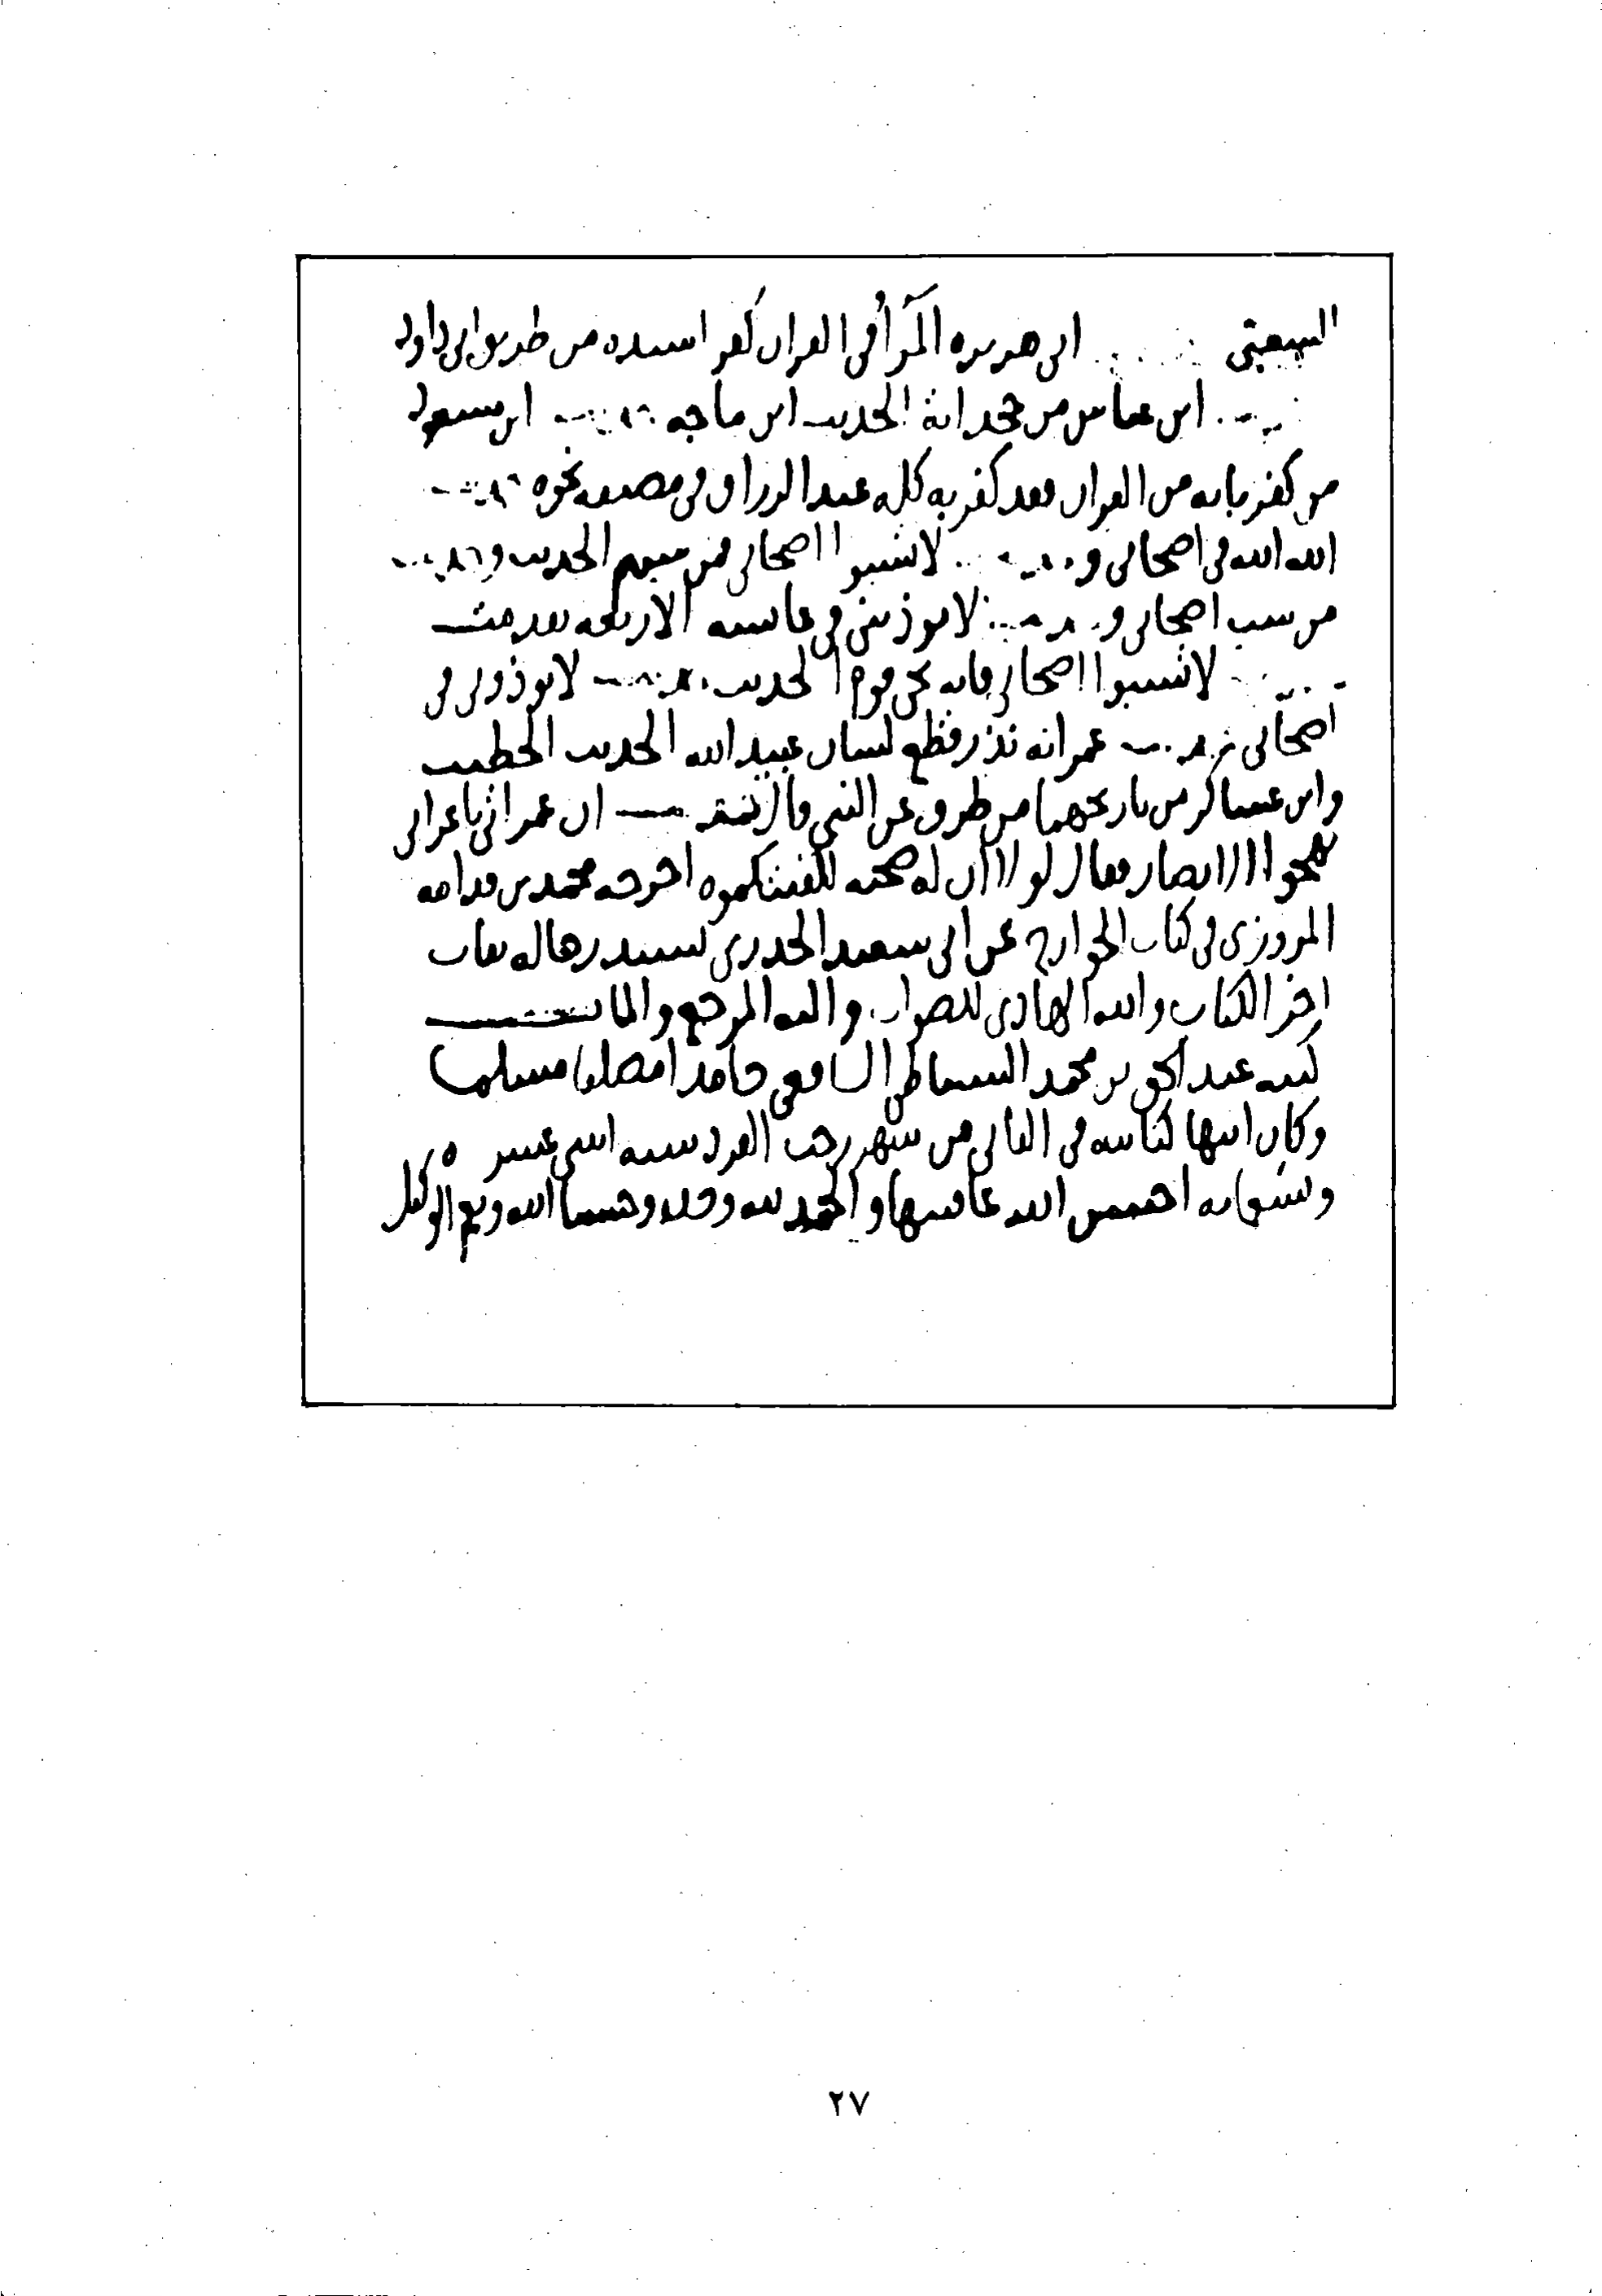 البيهقي ابى هريره المرأ فى القران كفر اسنده من طريق ابى داود
ابن عباس من جحد اية الحديث ابن ماجه ابن مسعود
من كفر بايه من القران فقد كفر به كله عبد الرزاق فى مصنفه نحوه
الله الله فى اصحابى و لا تسبوا اصحابى فمن سبهم الحديث و
من سب اصحابى و لا توذينى فى عايشه الاربعه تقدمت
لا تسبوا اصحابى فانه يجى قوم الحديث لا توذونى فى
اصحابى عمر انه نذر قطع لسان عبيد الله الحديث الخطيب
وابن عساكر من تاريخهما من طرق عن النبى قال ان عمر اتى باعرابى
يهجو الانصار فقال لولا ان له صحبه لكفيتكموه اخرجه محمد بن قدامه
المروزى فى كتاب الخوارج عن ابى سعيد الخدرى بسند رجاله ثقات
اخر الكتاب والله الهادى للصواب واليه المرجع والماب
كتبه عبد الحق بن محمد السنباطى الشافعى حامدا مصليا مسلما
وكان انتهاء كتابته فى الثانى من شهر رجب الفرد سنه اثنى عشر
وتسعمايه احسن الله عاقبتها والحمد لله وحده وحسبنا الله ونعم الوكيل
٢٧